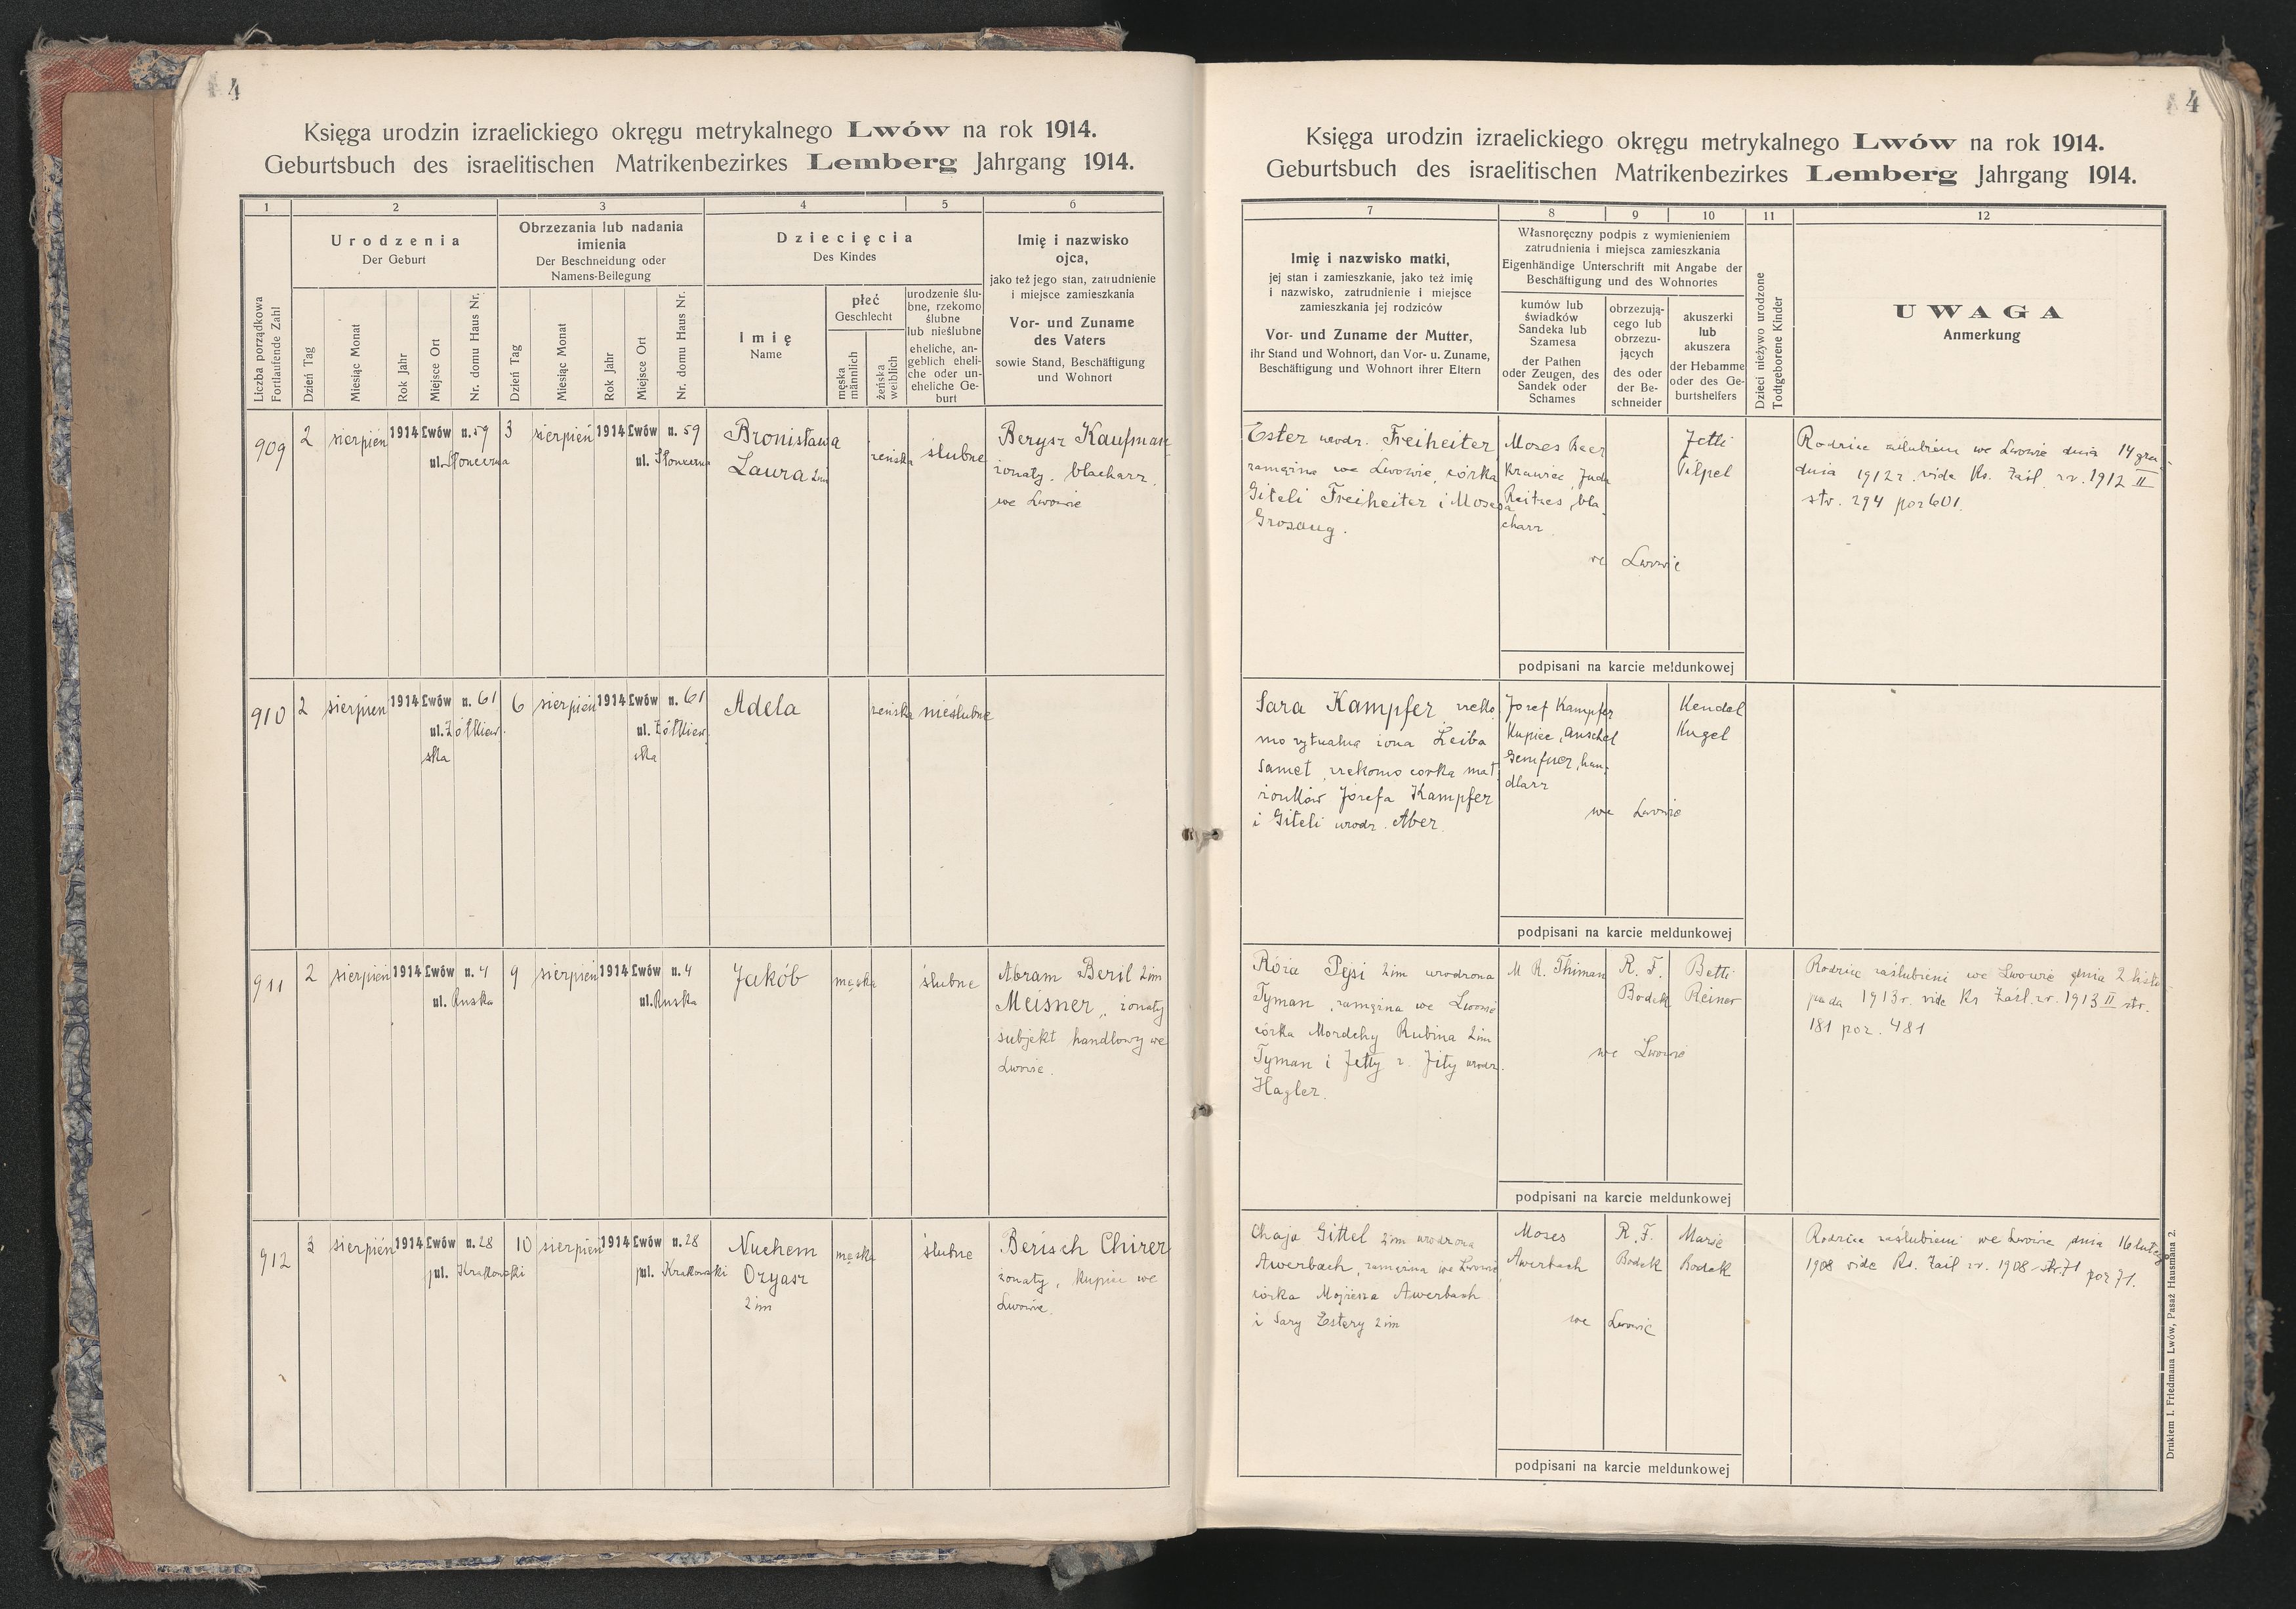 4
Księga urodzin izraelickiego okręgu metrykalnego Lwów na rok 1914.
Geburtsbuch des israelitischen Matrikenbezirkes Lemberg Jahrgang 1914.
1 2 3 4 5 6
Liczba porządkowa
Fortlaufende Zahl
Urodzenia
Der Geburt
Dzień Tag
Miesiąc Monat
Rok Jahr
Miejsce Ort
Nr. domu Haus Nr.
Obrzezania lub nadania
imienia
Der Beschneidung oder
Namens-Beilegung
Dzień Tag
Miesiąc Monat
Rok Jahr
Miejsce Ort
Nr. domu Haus Nr.
Dziecięcia
Des Kindes
Imię
Name
płeć
Geschlecht
męska
männlich
żeńska
weiblich
urodzenie ślu-
bne, rzekomo
ślubne
lub nieślubne
eheliche, an-
geblich eheli-
che oder un-
eheliche Ge-
burt
Imię i nazwisko
ojca,
jako też jego stan, zatrudnienie
i miejsce zamieszkania
Vor- und Zuname
des Vaters
sowie Stand, Beschäftigung
und Wohnort
909
2 sierpień 1914 Lwów n. 59
ul. Słoneczna
3 sierpień 1914 Lwów n. 59
ul. Słoneczna
Bronisława
Laura 2im
żeńska
ślubne
Berysz Kaufman
żonaty, blacharz,
we Lwowie
910
2 sierpień 1914 Lwów n. 61
ul. Żółkiew-
ska
6 sierpień 1914 Lwów n. 61
ul. Żółkiew-
ska
Adela
żeńska
nieślubne
911
2 sierpień 1914 Lwów n. 4
ul. Ruska
9 sierpień 1914 Lwów n. 4
ul. Ruska
Jakób
męska
ślubne
Abram Beril 2im
Meisner, żonaty
subjekt handlowy we
Lwowie.
912
3 sierpień 1914 Lwów n. 28
pul. Krakowski
10 sierpień 1914 Lwów n. 28
pul. Krakowski
Nuchem
Ozyasz
2im
męska
ślubne
Berisch Chirer
żonaty, kupiec we
Lwowie.
4
Księga urodzin izraelickiego okręgu metrykalnego Lwów na rok 1914.
Geburtsbuch des israelitischen Matrikenbezirkes Lemberg Jahrgang 1914.
7 8 9 10 11 12
Imię i nazwisko matki,
jej stan i zamieszkanie, jako też imię
i nazwisko, zatrudnienie i miejsce
zamieszkania jej rodziców
Vor- und Zuname der Mutter,
ihr Stand und Wohnort, dan Vor- u. Zuname,
Beschäftigung und Wohnort ihrer Eltern
Własnoręczny podpis z wymienieniem
zatrudnienia i miejsca zamieszkania
Eigenhändige Unterschrift mit Angabe der
Beschäftigung und des Wohnortes
kumów lub
świadków
Sandeka lub
Szamesa
der Pathen
oder Zeugen, des
Sandek oder
Schames
obrzezują-
cego lub
obrzezu-
jących
des oder
der Be-
schneider
akuszerki
lub
akuszera
der Hebamme
oder des Ge-
burtshelfers
Dzieci nieżywo urodzone
Todtgeborene Kinder
UWAGA
Anmerkung
Ester urodz. Freiheiter
zamężna we Lwowie, córka
Giteli Freiheiter i Mosesa
Grosaug.
Moses Beer
Krawiec, Juda
Reitzes, bla-
charz
we Lwowie
Jetti
Pilpel
podpisani na karcie meldunkowej
Rodzice zaślubieni we Lwowie dnia 14 gru-
dnia 1912 r. vide Ks. Zaśl. zr. 1912 II
str. 294 poz 601.
Sara Kampfer, rzeko
mo rytualna żona Leiba
Samet, rzekomo córka mał
żonków Józefa Kampfer
i Giteli urodz. Aber.
Josef Kampfer
Kupiec, Anschel
Gemfner, han-
dlarz
we Lwowie
Kendel
Kugel
podpisani na karcie meldunkowej
Róża Pesi 2im urodzona
Tyman, zamężna we Lwowie
córka Mordchy Rubina 2im
Tyman i Jetty v. Jity urodz.
Hagler.
M R. Thiman
R. F.
Bodek
we Lwowie
Betti
Reiner
podpisani na karcie meldunkowej
Rodzice zaślubieni we Lwowie dnia 2 listo
pada 1913 r. vide Ks Zaśl. zr. 1913 II str.
181 poz. 481
Chaja Gittel 2im urodzona
Awerbach, zamężna we Lwowie
córka Mojżesza Awerbach
i Sary Estery 2im
Moses
Awerbach
R. F.
Bodek
we Lwowie
Marie
Bodek
podpisani na karcie meldunkowej
Rodzice zaślubieni we Lwowie dnia 16 lutego
1908 vide Ks. Zaśl zr. 1908 str. 71 poz 71.
Drukiem I. Friedmana Lwów, Pasaż Hausmana 2.